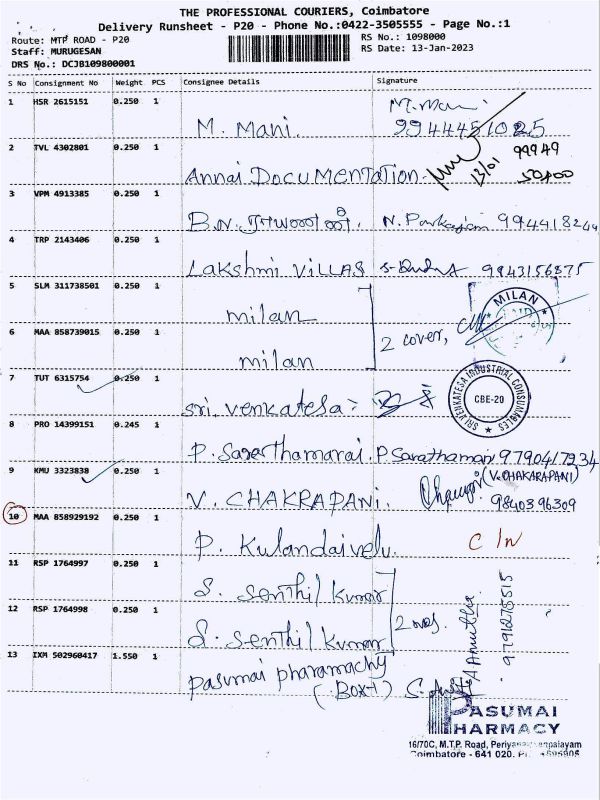 THE PROFESSIONAL COURIERS, Coimbatore
Delivery Runsheet - P20 - Phone No.:0422-3505555 - Page No.:1
Route: MTP ROAD - P20
RS No.: 1098000
Staff: MURUGESAN
RS Date: 13-Jan-2023
DRS No.: DCJB109800001
S No Consignment No Weight PCS Consignee Details Signature
1 HSR 2615151 0.250 1
M. Mani. M. Mani
9944451025
2 TVL 4302801 0.250 1
Annai Documentation 13/01 99949
50400
3 VPM 4913385 0.250 1
B.N. N. Pankajam
4 TRP 2143406 0.250 1
Lakshmi VILLAS 9843156875
5 SLM 311738501 0.250 1
milan
MILAN
6 MAA 858739015 0.250 1
2 cover,
milan
7 TUT 6315754 0.250 1
sri. venkatesa
SRI VENKATESA INDUSTRIAL CONSUMABLES
CBE-20
8 PRO 14399151 0.245 1
P. P Sarathamani 9790417234
9 KMU 3323838 0.250 1
V. CHAKRAPANI. (V. CHAKARAPANI)
9840396309
10 MAA 858929192 0.250 1
P. Kulandaivelu. C/N
11 RSP 1764997 0.250 1
S. Senthil Kumar
12 RSP 1764998 0.250 1
2 nos.
S. Senthil Kumar
A Amutha
9791278515
13 IXM 502960417 1.550 1
pasumai pharamachy
(Box-1)
PASUMAI
PHARMACY
16/70C, M.T.P. Road,
Coimbatore - 641 020.